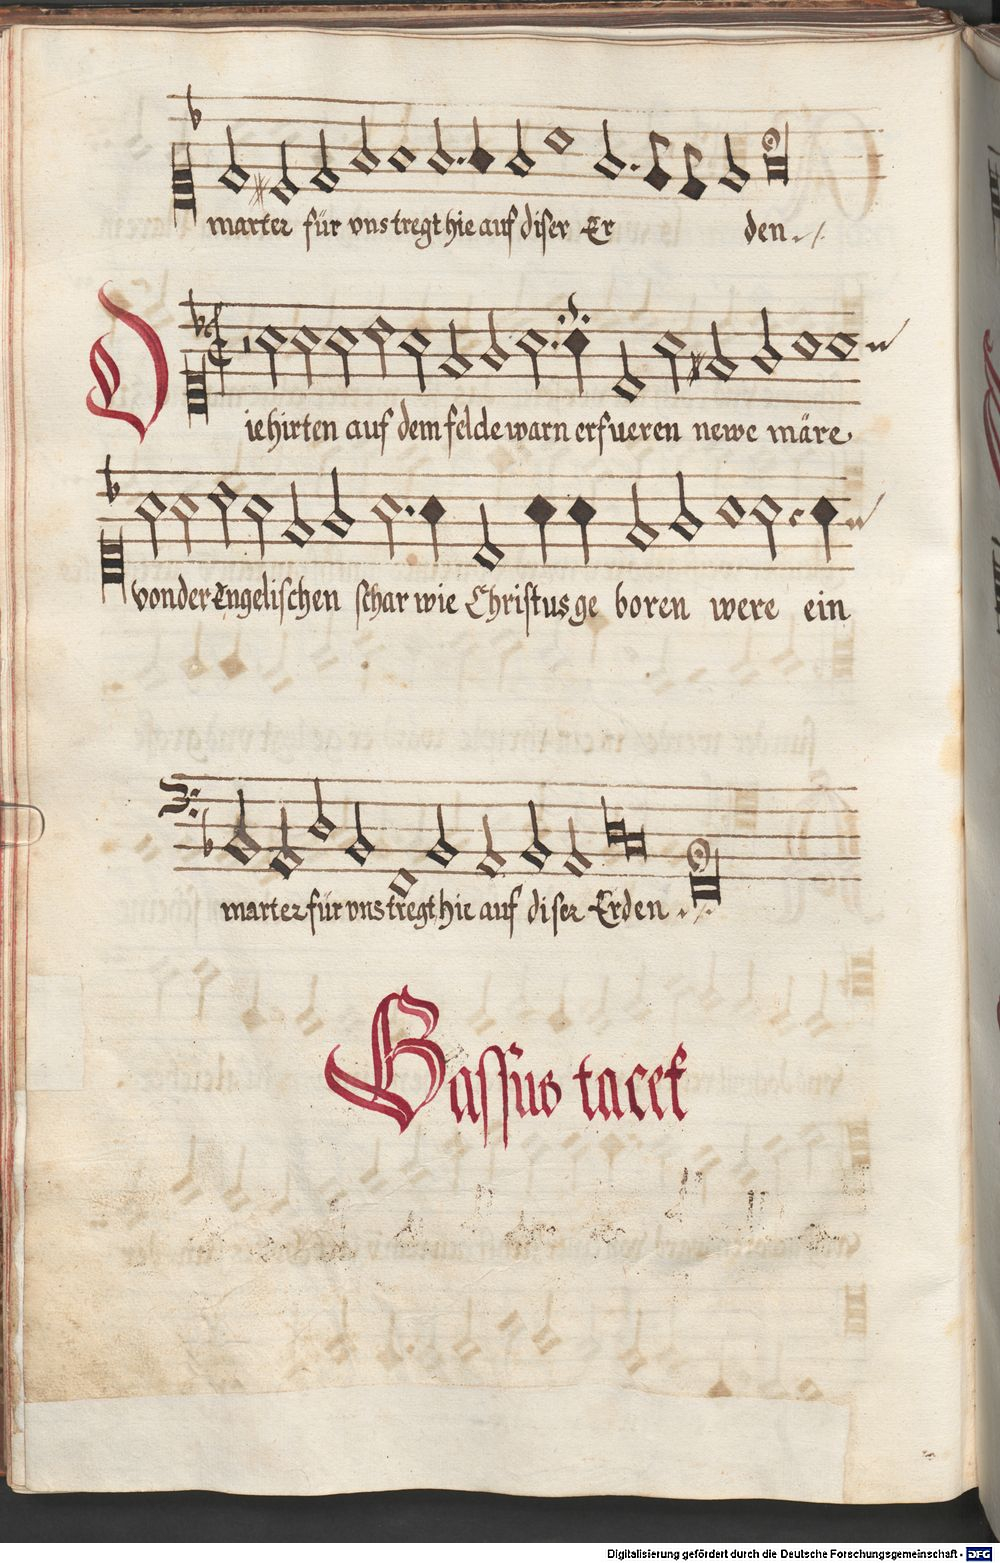 marter für vns tregt hie auf diser Er den
Die hirten auf dem felde warn erfueren newe märe
von der Engelischen schar wie Christus ge boren were ein
marter für vns tregt hie auf diser Erden
Bassus tacet
Digitalisierung gefördert durch die Deutsche Forschungsgemeinschaft - DFG